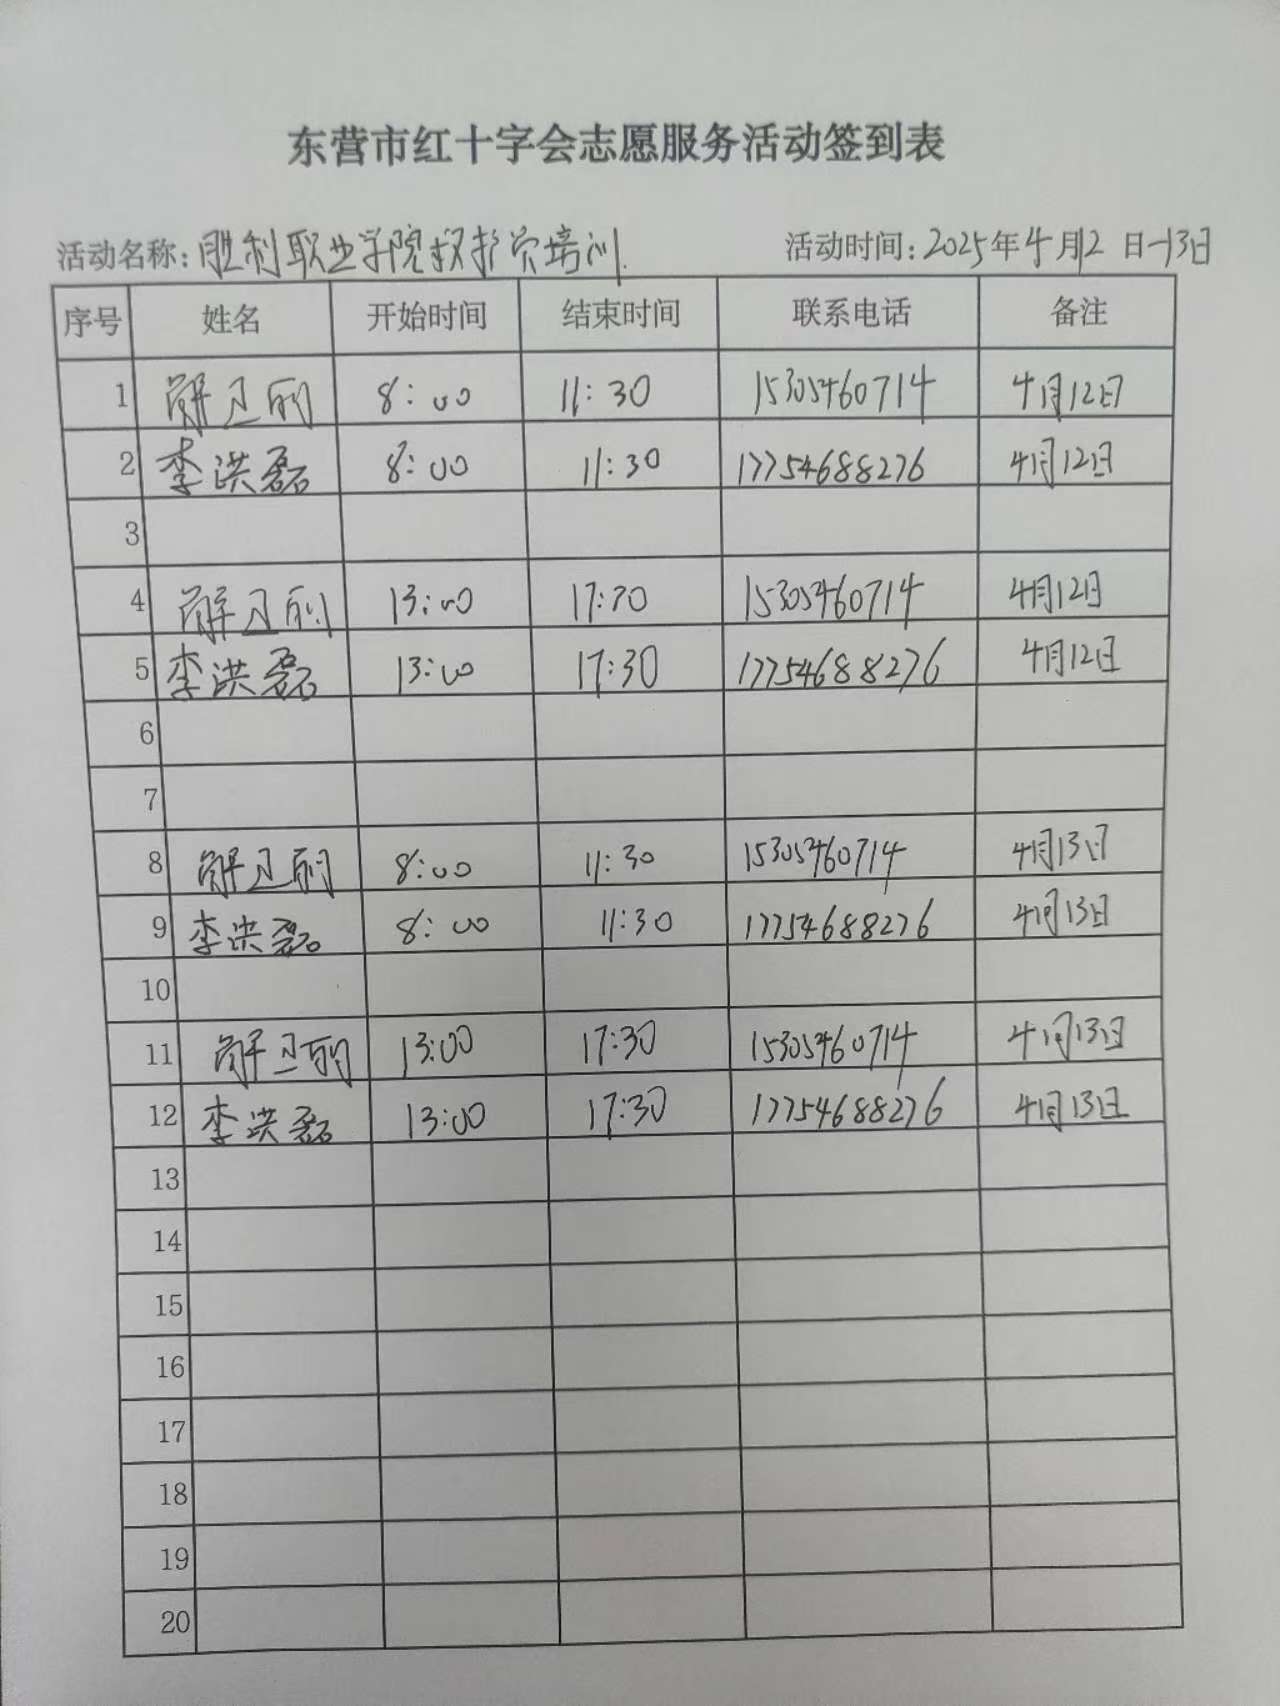 东营市红十字会志愿服务活动签到表
活动名称:胜利职业学院救护员培训 活动时间:2025年4月12日-13日
序号 姓名 开始时间 结束时间 联系电话 备注
1 解卫 8:00 11:30 15305460714 4月12日
2 李洪磊 8:00 11:30 17754688276 4月12日
3
4 解卫 13:00 17:30 15305460714 4月12日
5 李洪磊 13:00 17:30 17754688276 4月12日
6
7
8 解卫 8:00 11:30 15305460714 4月13日
9 李洪磊 8:00 11:30 17754688276 4月13日
10
11 解卫 13:00 17:30 15305460714 4月13日
12 李洪磊 13:00 17:30 17754688276 4月13日
13
14
15
16
17
18
19
20